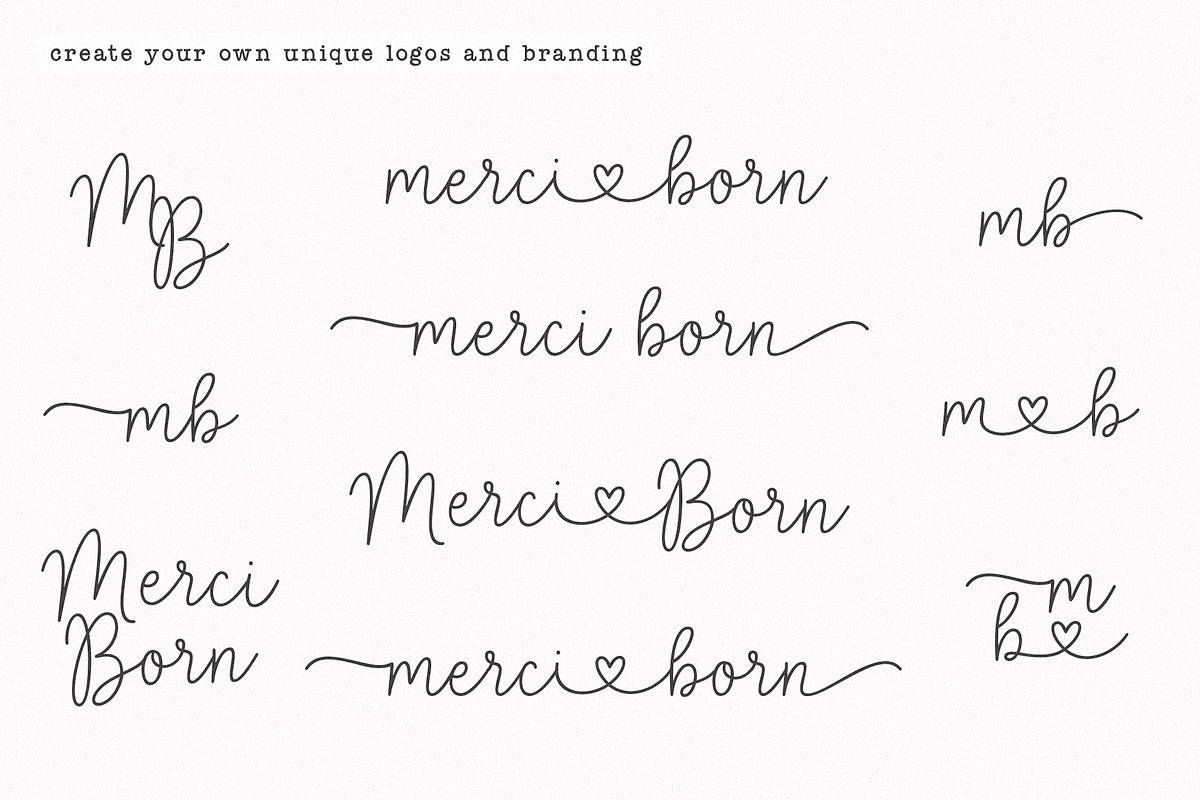 create your own unique logos and branding
MB
merci♡born
mb
merci born
mb
m♡b
Merci♡Born
Merci
Born
m
b♡
merci♡born